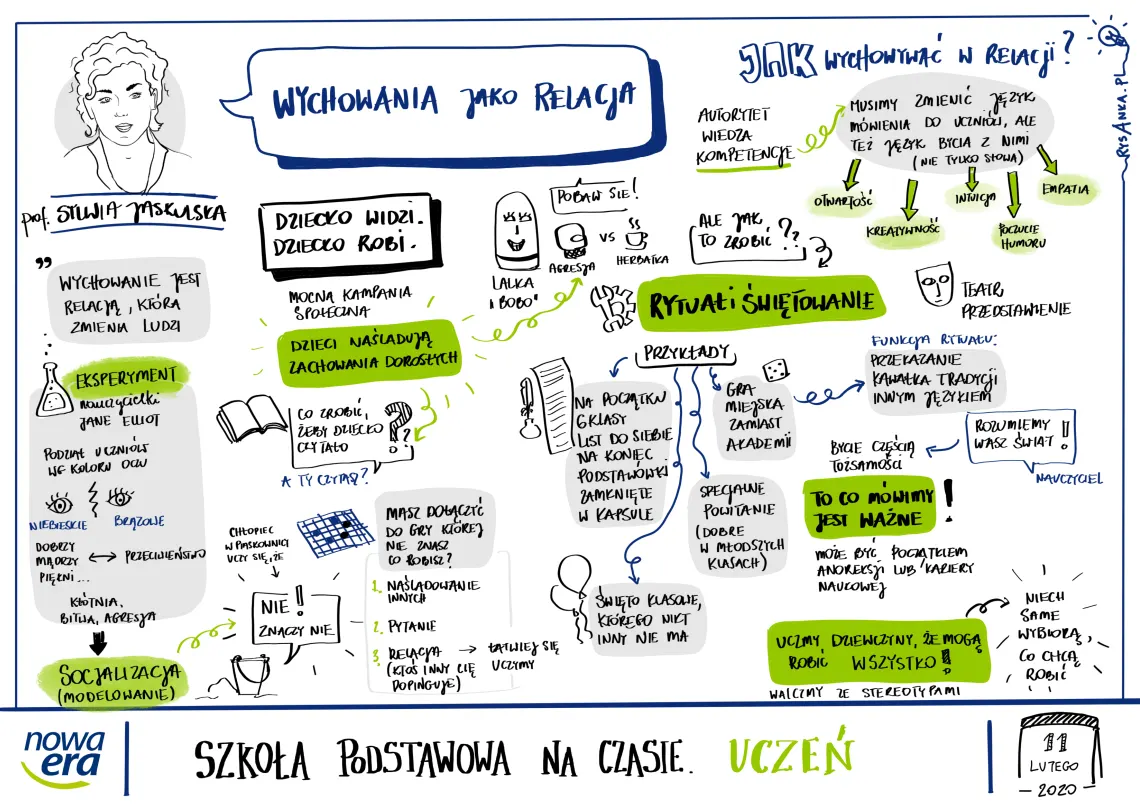 WYCHOWANIA JAKO RELACJA
prof. SYLWIA JASKULSKA
"
WYCHOWANIE JEST
RELACJĄ, KTÓRA
ZMIENIA LUDZI
EKSPERYMENT
nauczycielki
JANE ELLIOT
PODZIAŁ UCZNIÓW
WG KOLORU OCU
NIEBIESKIE
BRĄZOWE
DOBRZY
MĄDRZY
PIĘKNI...
PRZECIWIEŃSTWO
KŁÓTNIA,
BITWA, AGRESJA
SOCJALIZACJA
(MODELOWANIE)
DZIECKO WIDZI.
DZIECKO ROBI.
MOCNA KAMPANIA
SPOŁECZNA
DZIECI NAŚLADUJĄ
ZACHOWANIA DOROSŁYCH
LALKA
"BOBO"
POBAW SIĘ!
AGRESJA
VS
HERBATKA
CO ZROBIĆ,
ŻEBY DZIECKO
CZYTAŁO
?
A TY CZYTASZ?
CHŁOPIEC
W PIASKOWNICY
UCZY SIĘ, ŻE
NIE!
ZNACZY NIE
MASZ DOŁĄCZYĆ
DO GRY KTÓREJ
NIE ZNASZ
CO ROBISZ?
1. NAŚLADOWANIE
INNYCH
2. PYTANIE
3. RELACJA
(KTOŚ INNY CIĘ
DOPINGUJE)
ŁATWIEJ SIĘ
UCZYMY
JAK WYCHOWYWAĆ W RELACJI?
AUTORYTET
WIEDZA
KOMPETENCJE
MUSIMY ZMIENIĆ JĘZYK
MÓWIENIA DO UCZNIÓW, ALE
TEŻ JĘZYK BYCIA Z NIMI
(NIE TYLKO SŁOWA)
OTWARTOŚĆ
KREATYWNOŚĆ
INTUICJA
POCZUCIE
HUMORU
EMPATIA
ALE JAK
TO ZROBIĆ??
RYTUAŁ I ŚWIĘTOWANIE
TEATR,
PRZEDSTAWIENIE
PRZYKŁADY
NA POCZĄTKU
6 KLASY
LIST DO SIEBIE
NA KONIEC
PODSTAWÓWKI
ZAMKNIĘTE
W KAPSULE
GRA
MIEJSKA
ZAMIAST
AKADEMII
SPECJALNE
POWITANIE
(DOBRE
W MŁODSZYCH
KLASACH)
ŚWIĘTO KLASOWE,
KTÓREGO NIKT
INNY NIE MA
FUNKCJA RYTUAŁU:
PRZEKAZANIE
KAWAŁKA TRADYCJI
INNYM JĘZYKIEM
BYCIE CZĘŚCIĄ
TOŻSAMOŚCI
ROZUMIEMY
WASZ ŚWIAT!
NAUCZYCIEL
TO CO MÓWIMY
JEST WAŻNE
!
MOŻE BYĆ POCZĄTKIEM
ANOREKSJI LUB KARIERY
NAUKOWEJ
UCZMY DZIEWCZYNY, ŻE MOGĄ
ROBIĆ WSZYSTKO!
WALCZMY ZE STEREOTYPAMI
NIECH
SAME
WYBIORĄ,
CO CHCĄ
ROBIĆ
RYSANKA.PL
nowa
era
SZKOŁA PODSTAWOWA NA CZASIE. UCZEŃ
11
LUTEGO
- 2020 -